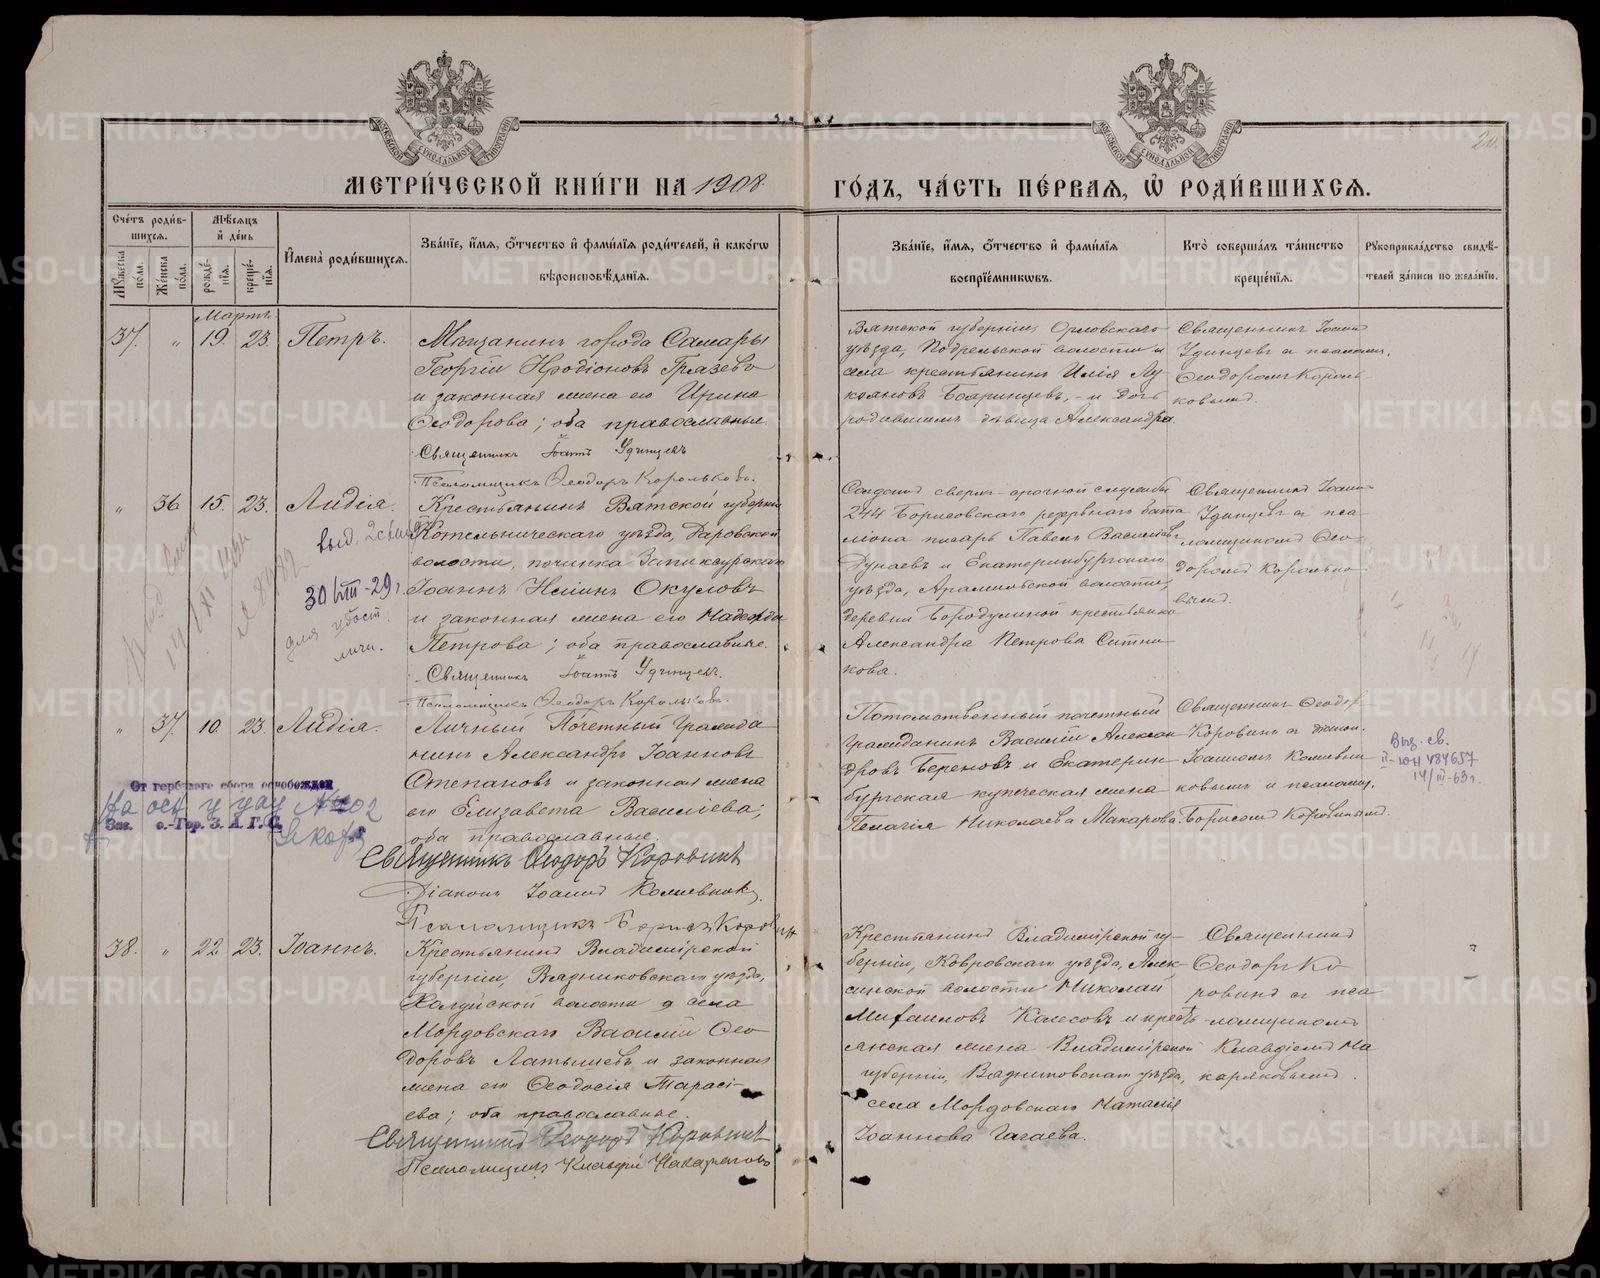 МОСКОВСКОЙ СѴНОДАЛЬНОЙ ТИПОГРАФІИ
МОСКОВСКОЙ СѴНОДАЛЬНОЙ ТИПОГРАФІИ
20.
МЕТРИ́ЧЕСКОЙ КНИ́ГИ НА 1908. ГО́ДЪ, ЧА́СТЬ ПЕ́РВАѦ, Ѡ҆ РОДИ́ВШИХСѦ.
Сче́тъ роди́в-
шихсѧ.
Мꙋ́жеска по́ла.
Же́нска по́ла.
Мѣ́сѧцъ
и҆ де́нь
рожде́-
нїѧ.
креще́-
нїѧ.
И҆мена̀ роди́вшихсѧ.
Зва́нїе, и҆́мѧ, ѻ҆́тчество и҆ фами́лїѧ роди́телей, и҆ како́гѡ
вѣроисповѣ́данїѧ.
Зва́нїе, и҆́мѧ, ѻ҆́тчество и҆ фами́лїѧ
воспрїе́мникѡвъ.
Кто̀ соверша́лъ та́инство
креще́нїѧ.
Рꙋкоприкла́дство свидѣ́-
телей за́писи по жела́нїю.
Мартъ
37. " 19. 23. Петръ.
Мѣщанинъ города Самары
Георгій Иродіоновъ Грязевъ
и законная жена его Ирина
Ѳеодорова; оба православные.
Священникъ Іоаннъ Удинцевъ
Псаломщикъ Ѳеодоръ Корольковъ.
Вятской губерніи, Орловскаго
уѣзда, Подрельской волости и
села крестьянинъ Илія Лу
кояновъ Бояринцевъ, - и дочь
родившаго дѣвица Александра
Священникъ Іоаннъ
Удинцевъ съ псаломщ.
Ѳеодоромъ Король-
ковымъ.
" 36 15. 23. Лидія.
Крестьянинъ Вятской губерніи
Котельническаго уѣзда, Даровской
волости, починка
Іоаннъ Окуловъ
и законная жена его Надежда
Петрова; оба православные.
Священникъ Іоаннъ Удинцевъ.
Псаломщикъ Ѳеодоръ Корольковъ.
выд.
30/VIII-29 г.
для удост.
личн.
Солдатъ сверх-срочной службы
244 Борисовскаго резервнаго бата
ліона писарь Павелъ Васильевъ
Дунаевъ и Екатеринбургскаго
уѣзда, Арамильской волости,
деревни Бородулиной крестьянка
Александра Петрова Ситни
кова.
Священникъ Іоаннъ
Удинцевъ съ пса
ломщикомъ Ѳео-
доромъ Королько-
вымъ.
" 37. 10. 23. Лидія.
Личный Почетный Гражда
нинъ Александръ Іоанновъ
Степановъ и законная жена
его Елизавета Васильева;
оба православные.
Священникъ Ѳеодоръ Коровинъ
Діаконъ Іоаннъ
Псаломщикъ Борисъ Коровинъ
От гербового сбора освобожден
Зав. Гор. З. А. Г. С.
Потомственный почетный
гражданинъ Василій Алексан
дровъ Береновъ и Екатерин
бургская купеческая жена
Пелагія Николаева Макарова.
Священникъ Ѳеодоръ
Коровинъ съ діакон.
Іоанномъ
ковымъ и псаломщ.
Борисомъ Коровинымъ.
Выд. св.
II-ЮН 484657
14/III-63 г.
38. " 22 23. Іоаннъ.
Крестьянинъ Владимірской
губерніи, Вязниковскаго уѣзда,
Холуйской волости села
Мордовскаго Василій Ѳео
доровъ Латышевъ и законная
жена его Ѳеодосія Тарасі-
ева; оба православные.
Священникъ Ѳеодоръ Коровинъ
Псаломщикъ Клавдій Накаряковъ
Крестьянинъ Владимірской гу-
берніи, Ковровскаго уѣзда, Алек-
синской волости Николай
Михаиловъ Колесовъ и кресть
янская жена Владимірской
губерніи, Вязниковскаго уѣзда,
села Мордовскаго Наталія
Іоаннова Гагаева.
Священникъ
Ѳеодоръ Ко
ровинъ съ пса
ломщикомъ
Клавдіемъ На
каряковымъ.
METRIKI.GASO-URAL.RU